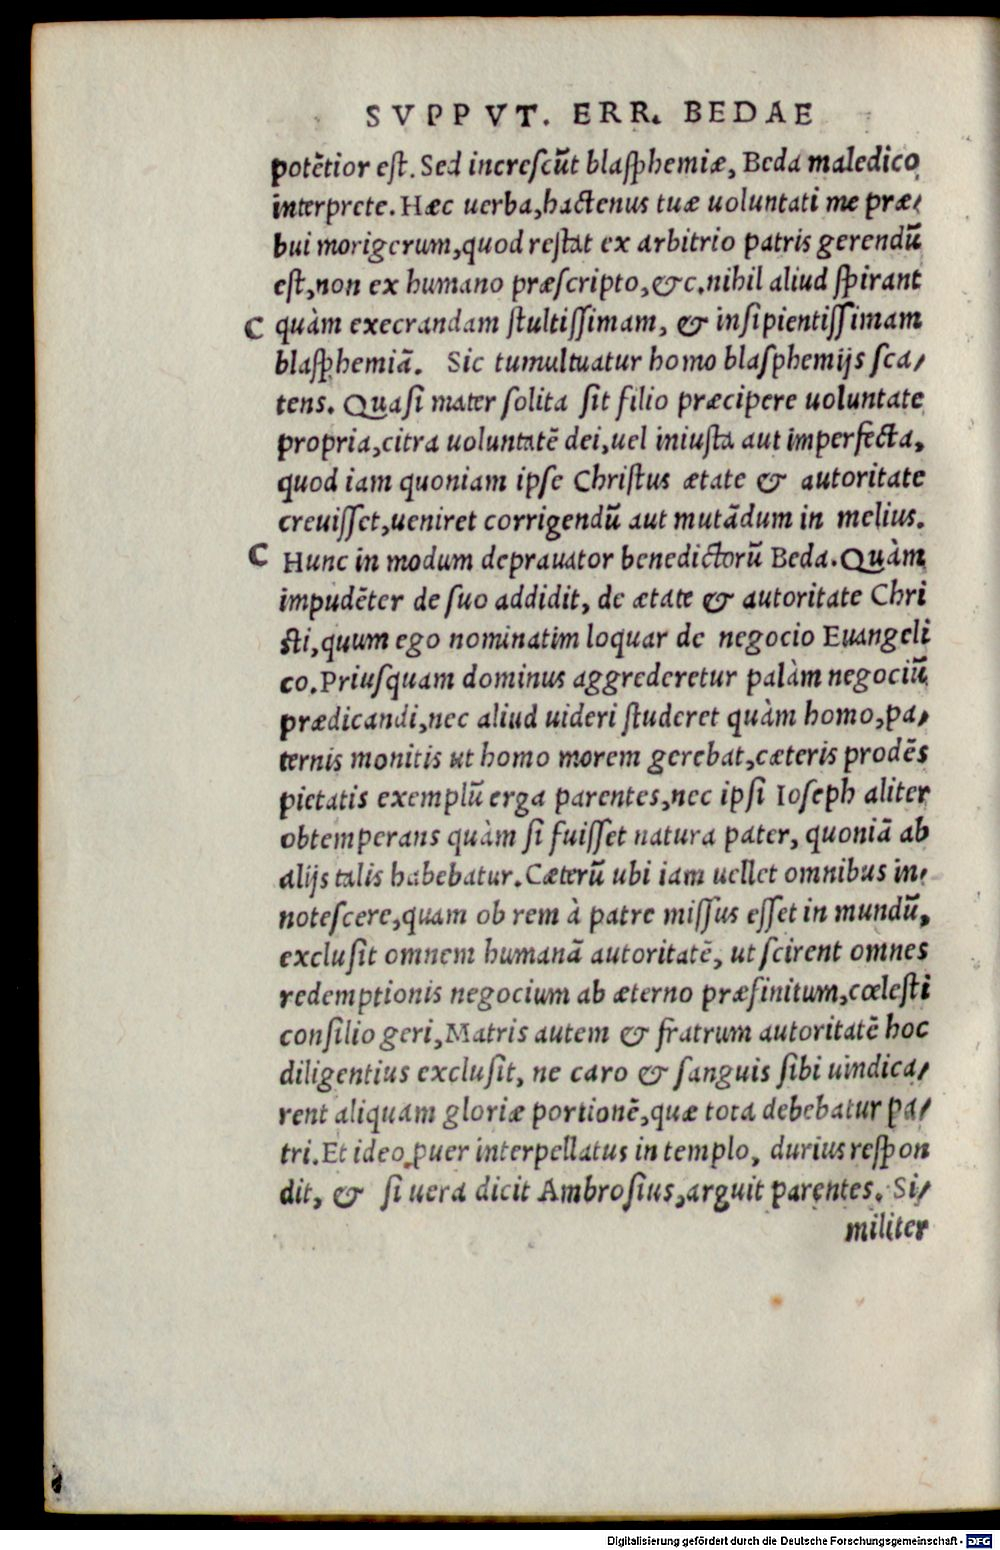 SVPPVT. ERR. BEDAE
potẽtior est. Sed increscũt blasphemiæ, Beda maledico
interprete. Hæc uerba, hactenus tuæ uoluntati me præ/
bui morigerum, quod restat ex arbitrio patris gerendũ
est, non ex humano præscripto, &c. nihil aliud spirant
C quàm execrandam stultissimam, & insipientissimam
blasphemiã. Sic tumultuatur homo blasphemijs sca/
tens. Quasi mater solita sit filio præcipere uoluntate
propria, citra uoluntatẽ dei, uel iniusta aut imperfecta,
quod iam quoniam ipse Christus ætate & autoritate
creuisset, ueniret corrigendũ aut mutãdum in melius.
C Hunc in modum deprauator benedictorũ Beda. Quàm
impudẽter de suo addidit, de ætate & autoritate Chri
sti, quum ego nominatim loquar de negocio Euangeli
co. Priusquam dominus aggrederetur palàm negociũ
prædicandi, nec aliud uideri studeret quàm homo, pa/
ternis monitis ut homo morem gerebat, cæteris prodẽs
pietatis exemplũ erga parentes, nec ipsi Ioseph aliter
obtemperans quàm si fuisset natura pater, quoniã ab
alijs talis habebatur. Cæterũ ubi iam uellet omnibus in/
notescere, quam ob rem à patre missus esset in mundũ,
exclusit omnem humanã autoritatẽ, ut scirent omnes
redemptionis negocium ab æterno præfinitum, cœlesti
consilio geri, Matris autem & fratrum autoritatẽ hoc
diligentius exclusit, ne caro & sanguis sibi uindica/
rent aliquam gloriæ portionẽ, quæ tota debebatur pa/
tri. Et ideo puer interpellatus in templo, durius respon
dit, & si uera dicit Ambrosius, arguit parentes. Si/
militer
Digitalisierung gefördert durch die Deutsche Forschungsgemeinschaft - DFG